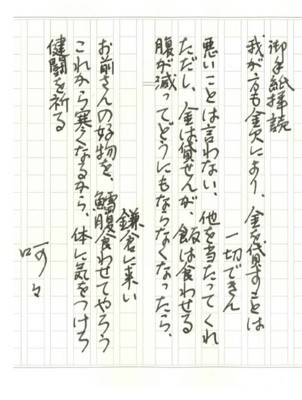 御手紙拝読
我が方も金欠により、金を貸すことは
一切できん
悪いことは言わない、他を当たってくれ
ただし、金は貸せんが、飯は食わせる
腹が減ってどうにもならなくなったら、
鎌倉に来い
お前さんの好物を、鱈腹食わせてやろう
これから寒くなるから、体に気をつけろ
健闘を祈る
呵々